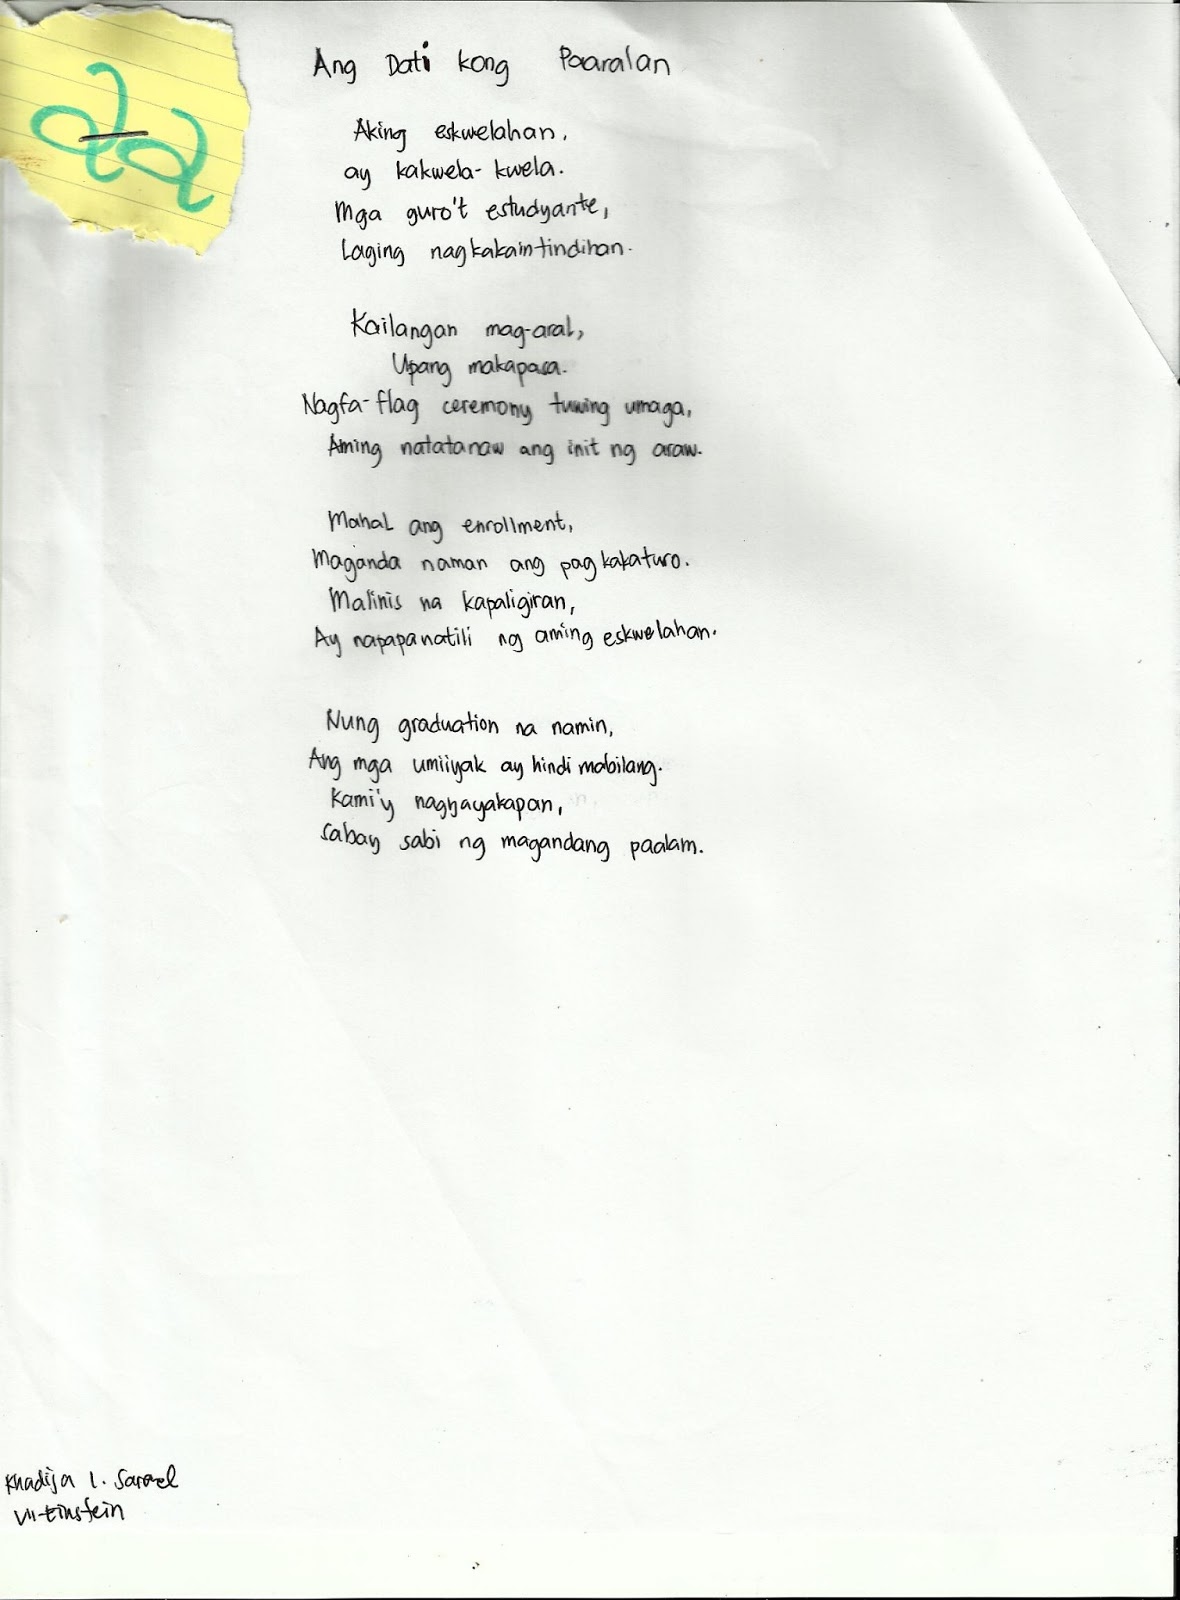 22
Ang Dati kong Paaralan
Aking eskwelahan,
ay kakwela-kwela.
Mga guro't estudyante,
Laging nagkakaintindihan.
Kailangan mag-aral,
Upang makapasa.
Nagfa-flag ceremony tuwing umaga,
Aming natatanaw ang init ng araw.
Mahal ang enrollment,
Maganda naman ang pagkakaturo.
Malinis na kapaligiran,
Ay napapanatili ng aming eskwelahan.
Nung graduation na namin,
Ang mga umiiyak ay hindi mabilang.
Kami'y nagyayakapan,
Sabay sabi ng magandang paalam.
Khadija I.
VII-Einstein